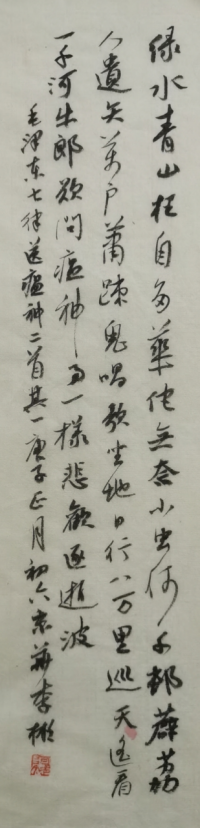 绿水青山枉自多華佗無奈小虫何千邨薜荔
人遺矢萬户蕭疎鬼唱歌坐地日行八万里巡天遥看
一千河牛郎欲問瘟神事一樣悲歡逐逝波
毛泽东七律送瘟神二首其一庚子正月初六京華李彬